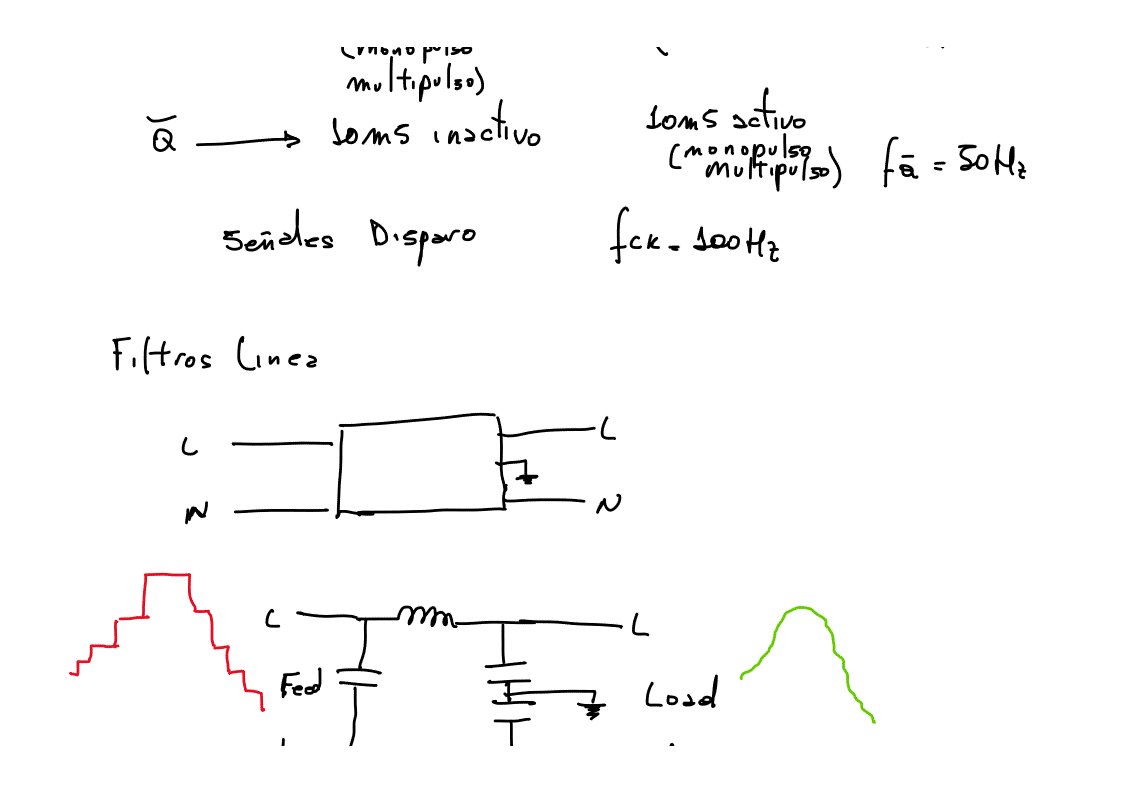 (monopulso
multipulso)
Q̅ → 10ms inactivo
10ms activo
(monopulso
multipulso)
fQ̅ = 50Hz
Señales Disparo
fck = 100Hz
Filtros Linea
L
L
N
N
L
L
Feed
Load